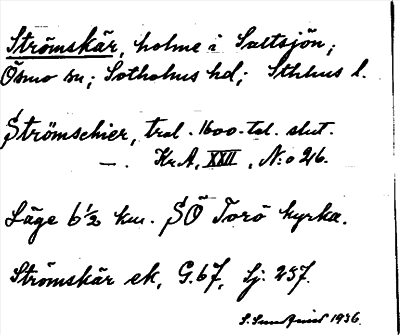 Strömskär, holme i Saltsjön;
Ösmo sn; Sotholms hd; Sthlms l.
Strömschier, trol. 1600-tal. slut.
—. Kr.A, XXII, N:o 26.
Läge 6 1/2 km. SÖ Torö kyrka.
Strömskär ek, G.67, Sj. 257.
1936